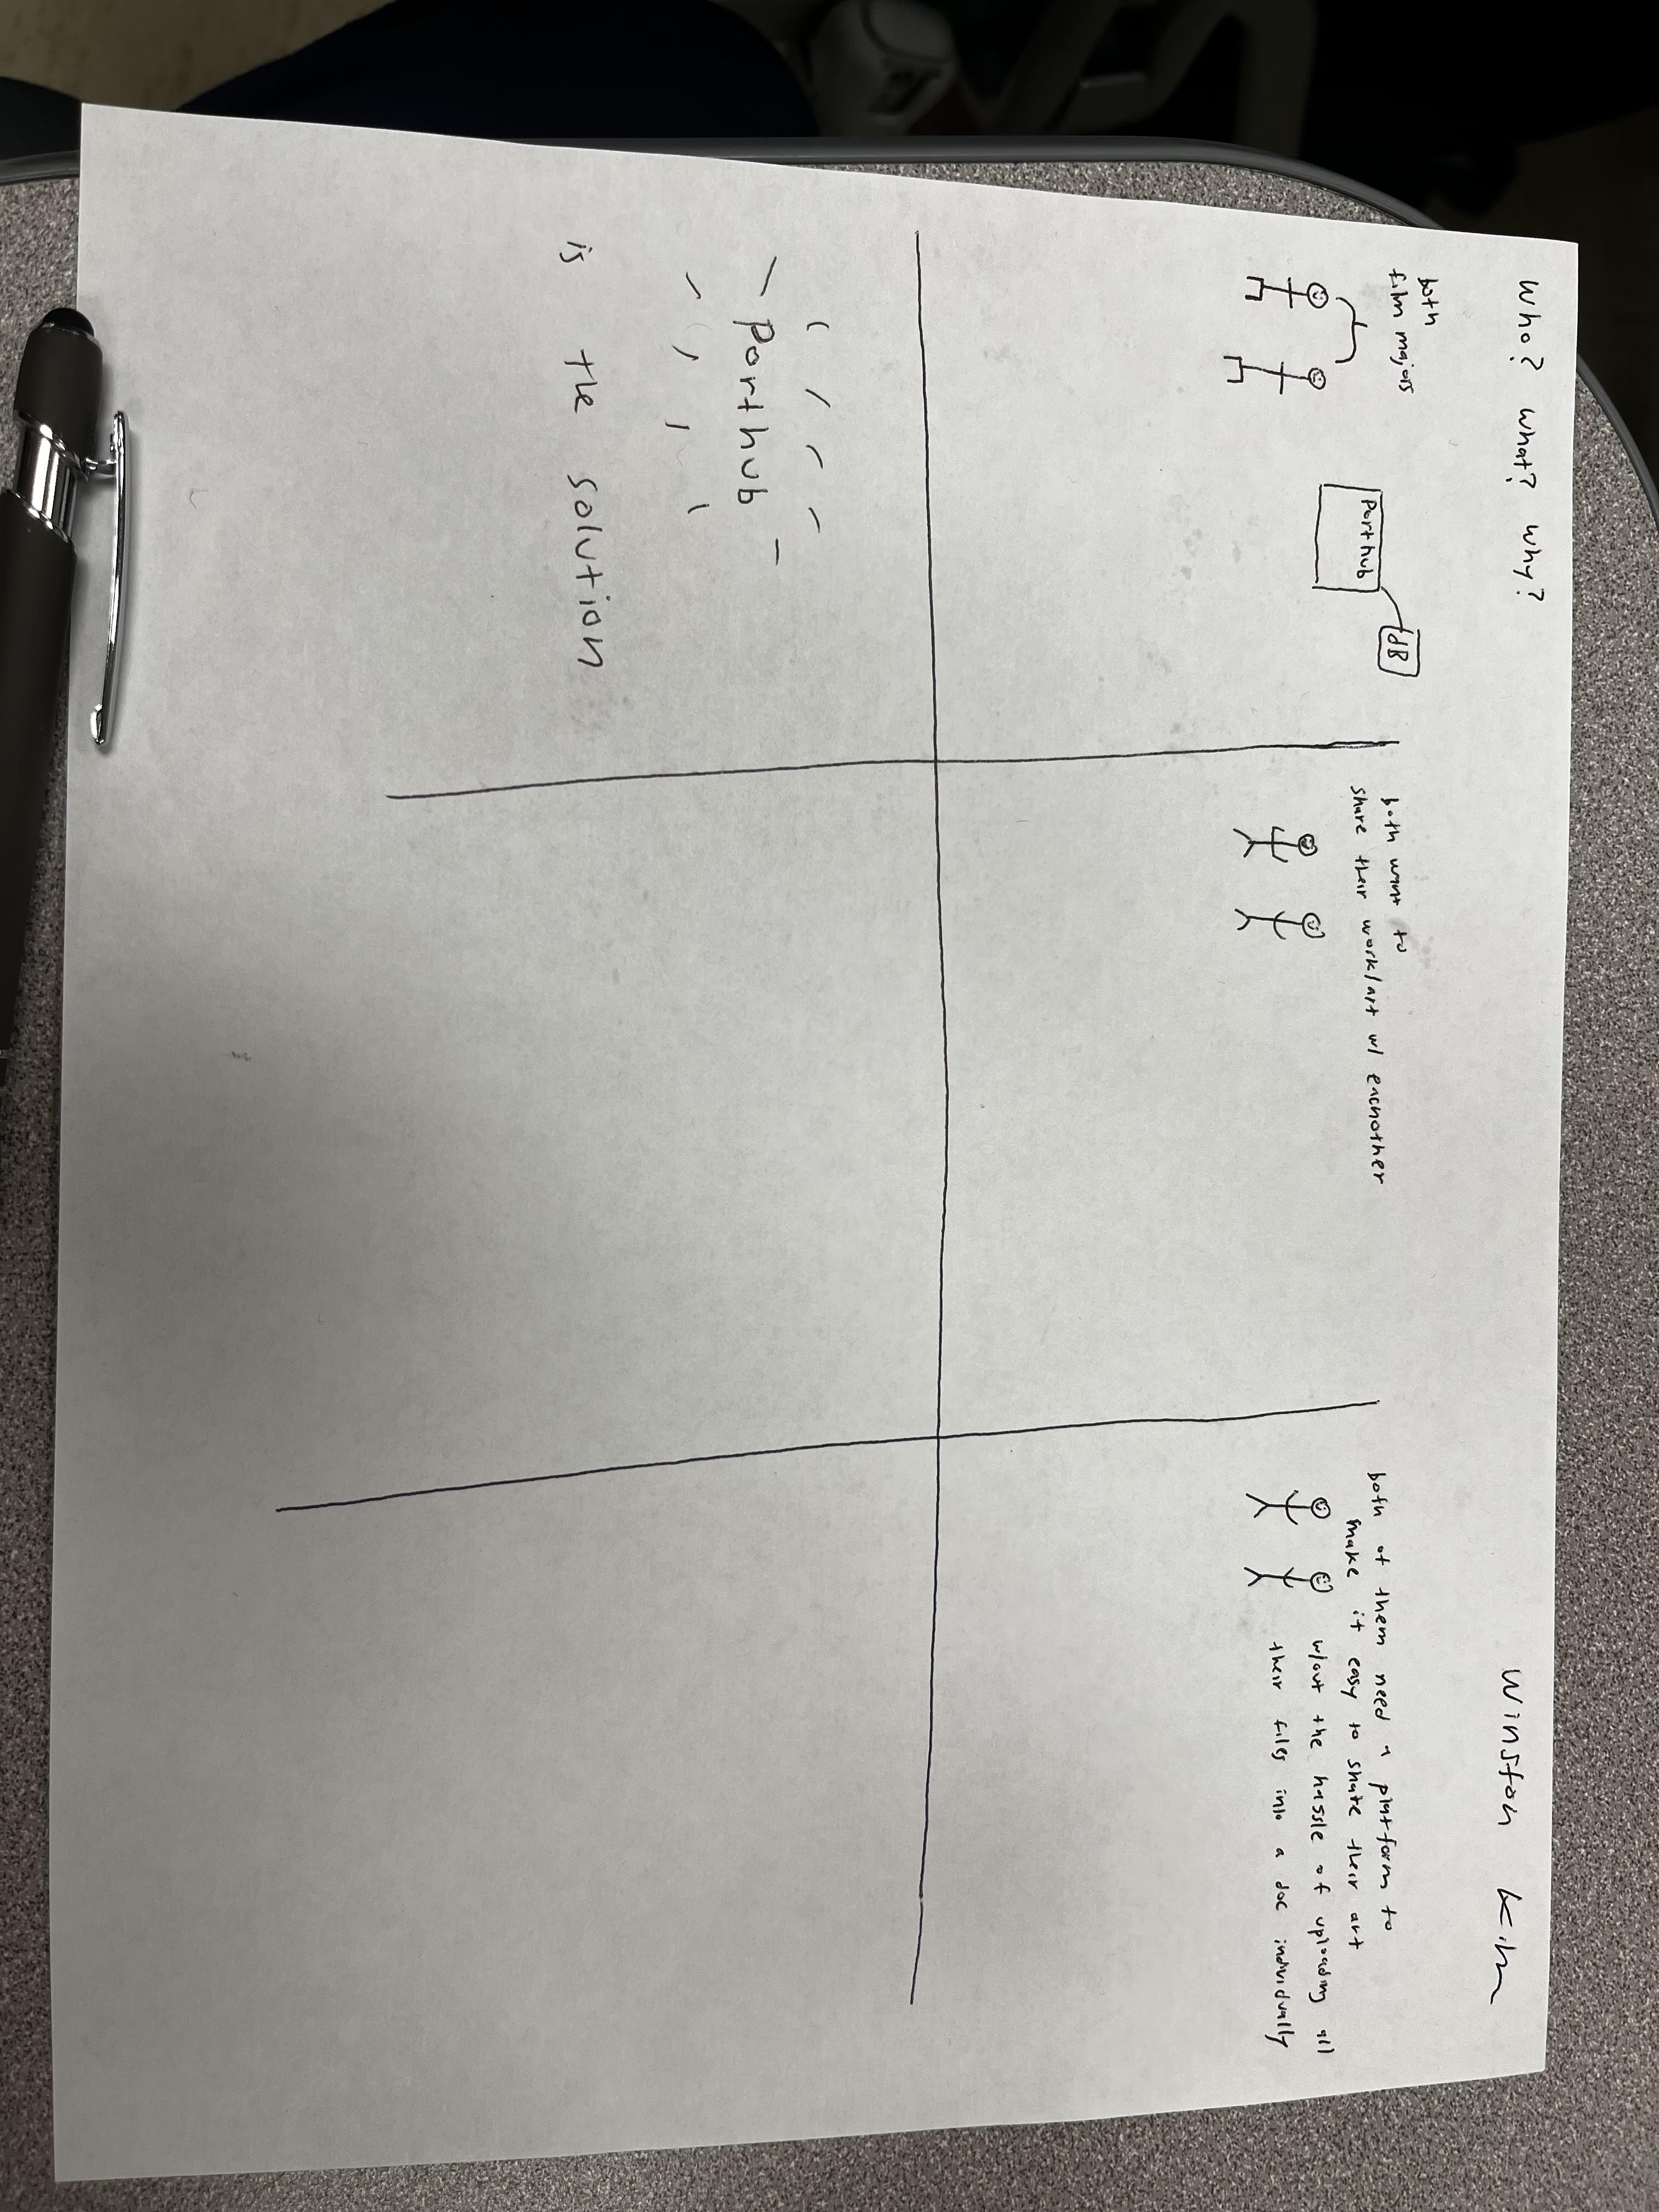 Who? what? why?
Winston Kim
both
film majors
Porthub
dB
both want to
share their work/art w/ eachother
both of them need a platform to
make it easy to share their art
w/out the hassle of uploading all
their files into a doc individually
Porthub
is the solution